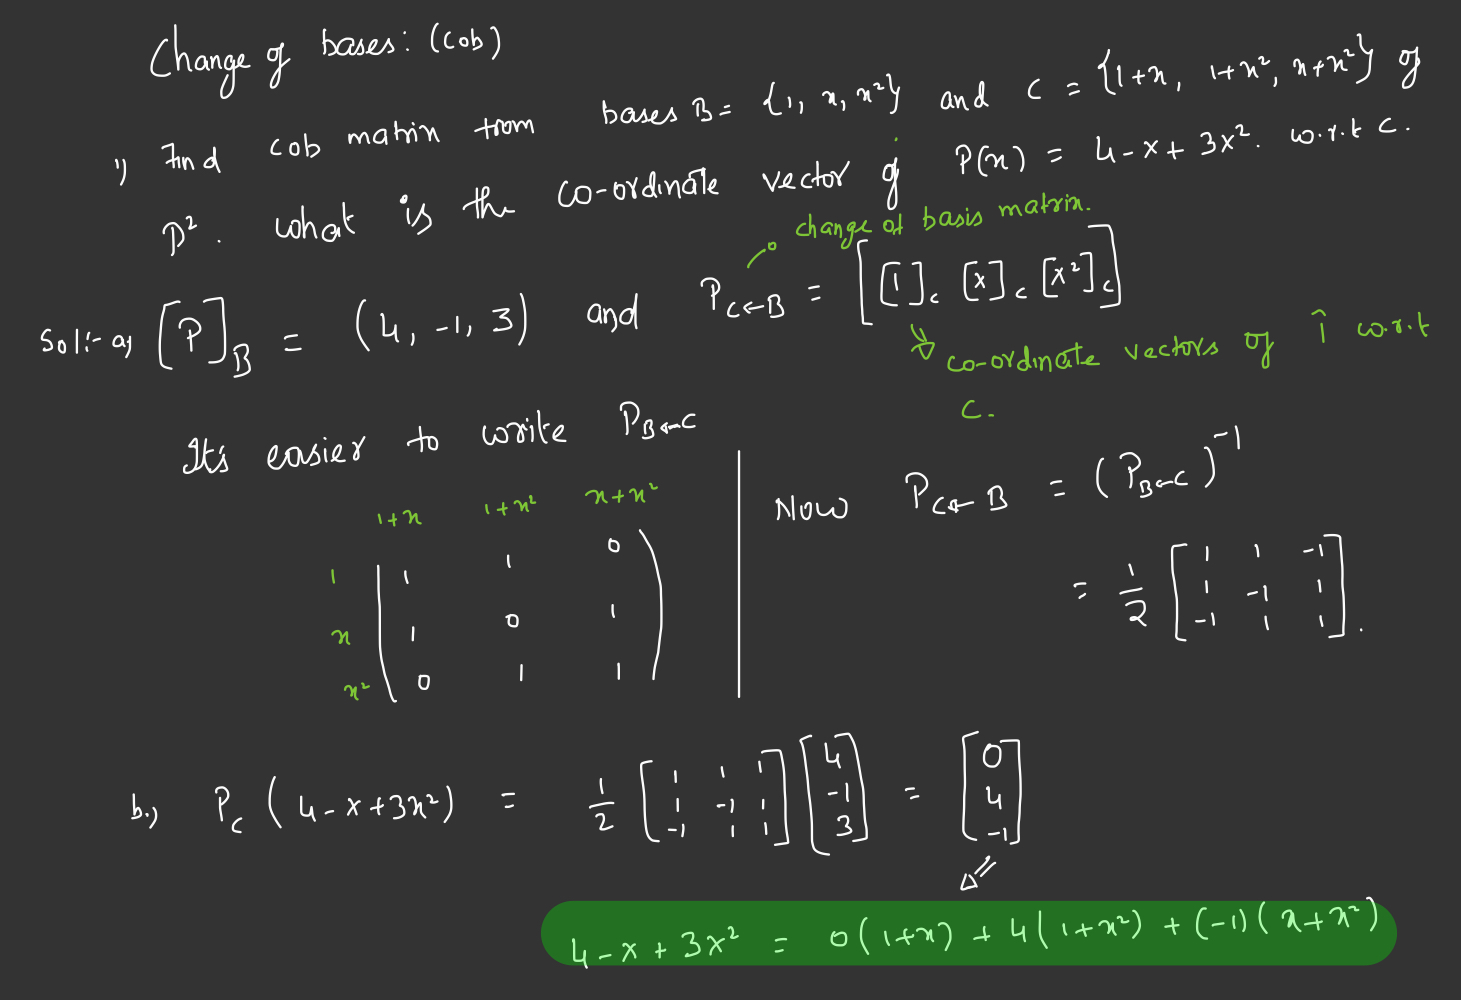 Change of bases: (cob)
1) Find cob matrix from bases B = {1, x, x²} and C = {1+x, 1+x², x+x²} of
P². What is the co-ordinate vector of P(x) = 4-x+3x². w.r.t C.
change of basis matrix.
Sol:- a) [P]_B = (4, -1, 3) and P_{C←B} = [[1]_C [x]_C [x²]_C]
co-ordinate vectors of î w.r.t
C.
It's easier to write P_{B←C}
1+x 1+x² x+x²
1 1 1 0
x 1 0 1
x² 0 1 1
Now P_{C←B} = (P_{B←C})^{-1}
= 1/2 [1 1 -1
1 -1 1
-1 1 1].
b.) P_C (4-x+3x²) = 1/2 [1 1 1
1 -1 1
-1 1 1] [4
-1
3] = [0
4
-1]
4-x+3x² = 0(1+x) + 4(1+x²) + (-1)(x+x²)